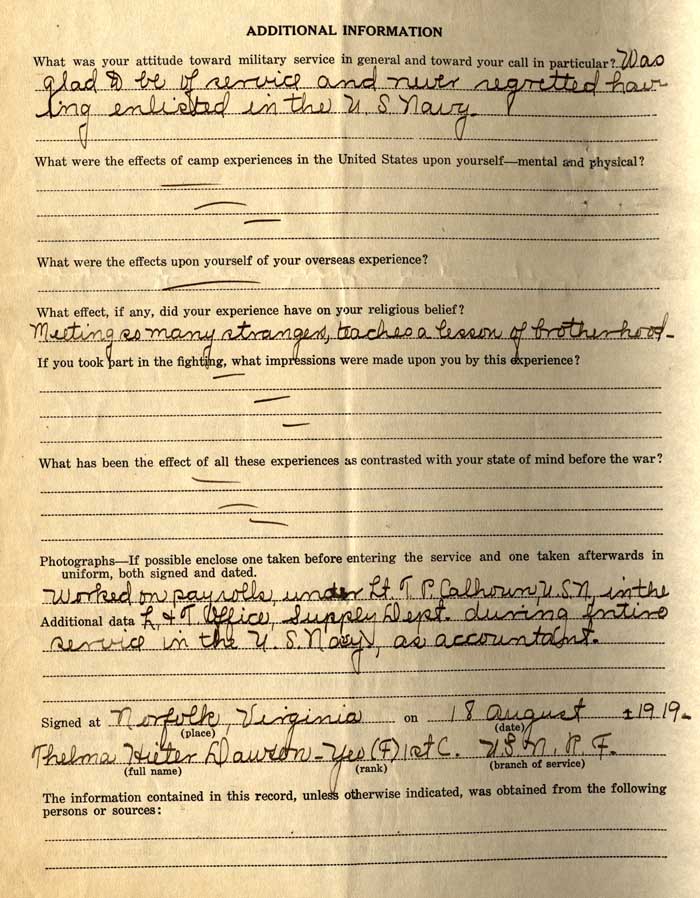 ADDITIONAL INFORMATION
What was your attitude toward military service in general and toward your call in particular? Was
glad to be of service and never regretted hav-
ing enlisted in the U. S. Navy.
What were the effects of camp experiences in the United States upon yourself—mental and physical?
What were the effects upon yourself of your overseas experience?
What effect, if any, did your experience have on your religious belief?
Meeting so many strangers, teaches a lesson of brotherhood.-
If you took part in the fighting, what impressions were made upon you by this experience?
What has been the effect of all these experiences as contrasted with your state of mind before the war?
Photographs—If possible enclose one taken before entering the service and one taken afterwards in
uniform, both signed and dated.
Worked on pay rolls, under Lt. T. P. Calhoun U.S.N, in the
Additional data L. & T. Office, Supply Dept. during entire
service in the U. S. Navy, as accountant.
Signed at Norfolk, Virginia on 18 August 1919.
(place) (date)
Thelma Dawson - Yeo (F) 1st C. U.S.N.R.F.
(full name) (rank) (branch of service)
The information contained in this record, unless otherwise indicated, was obtained from the following
persons or sources: